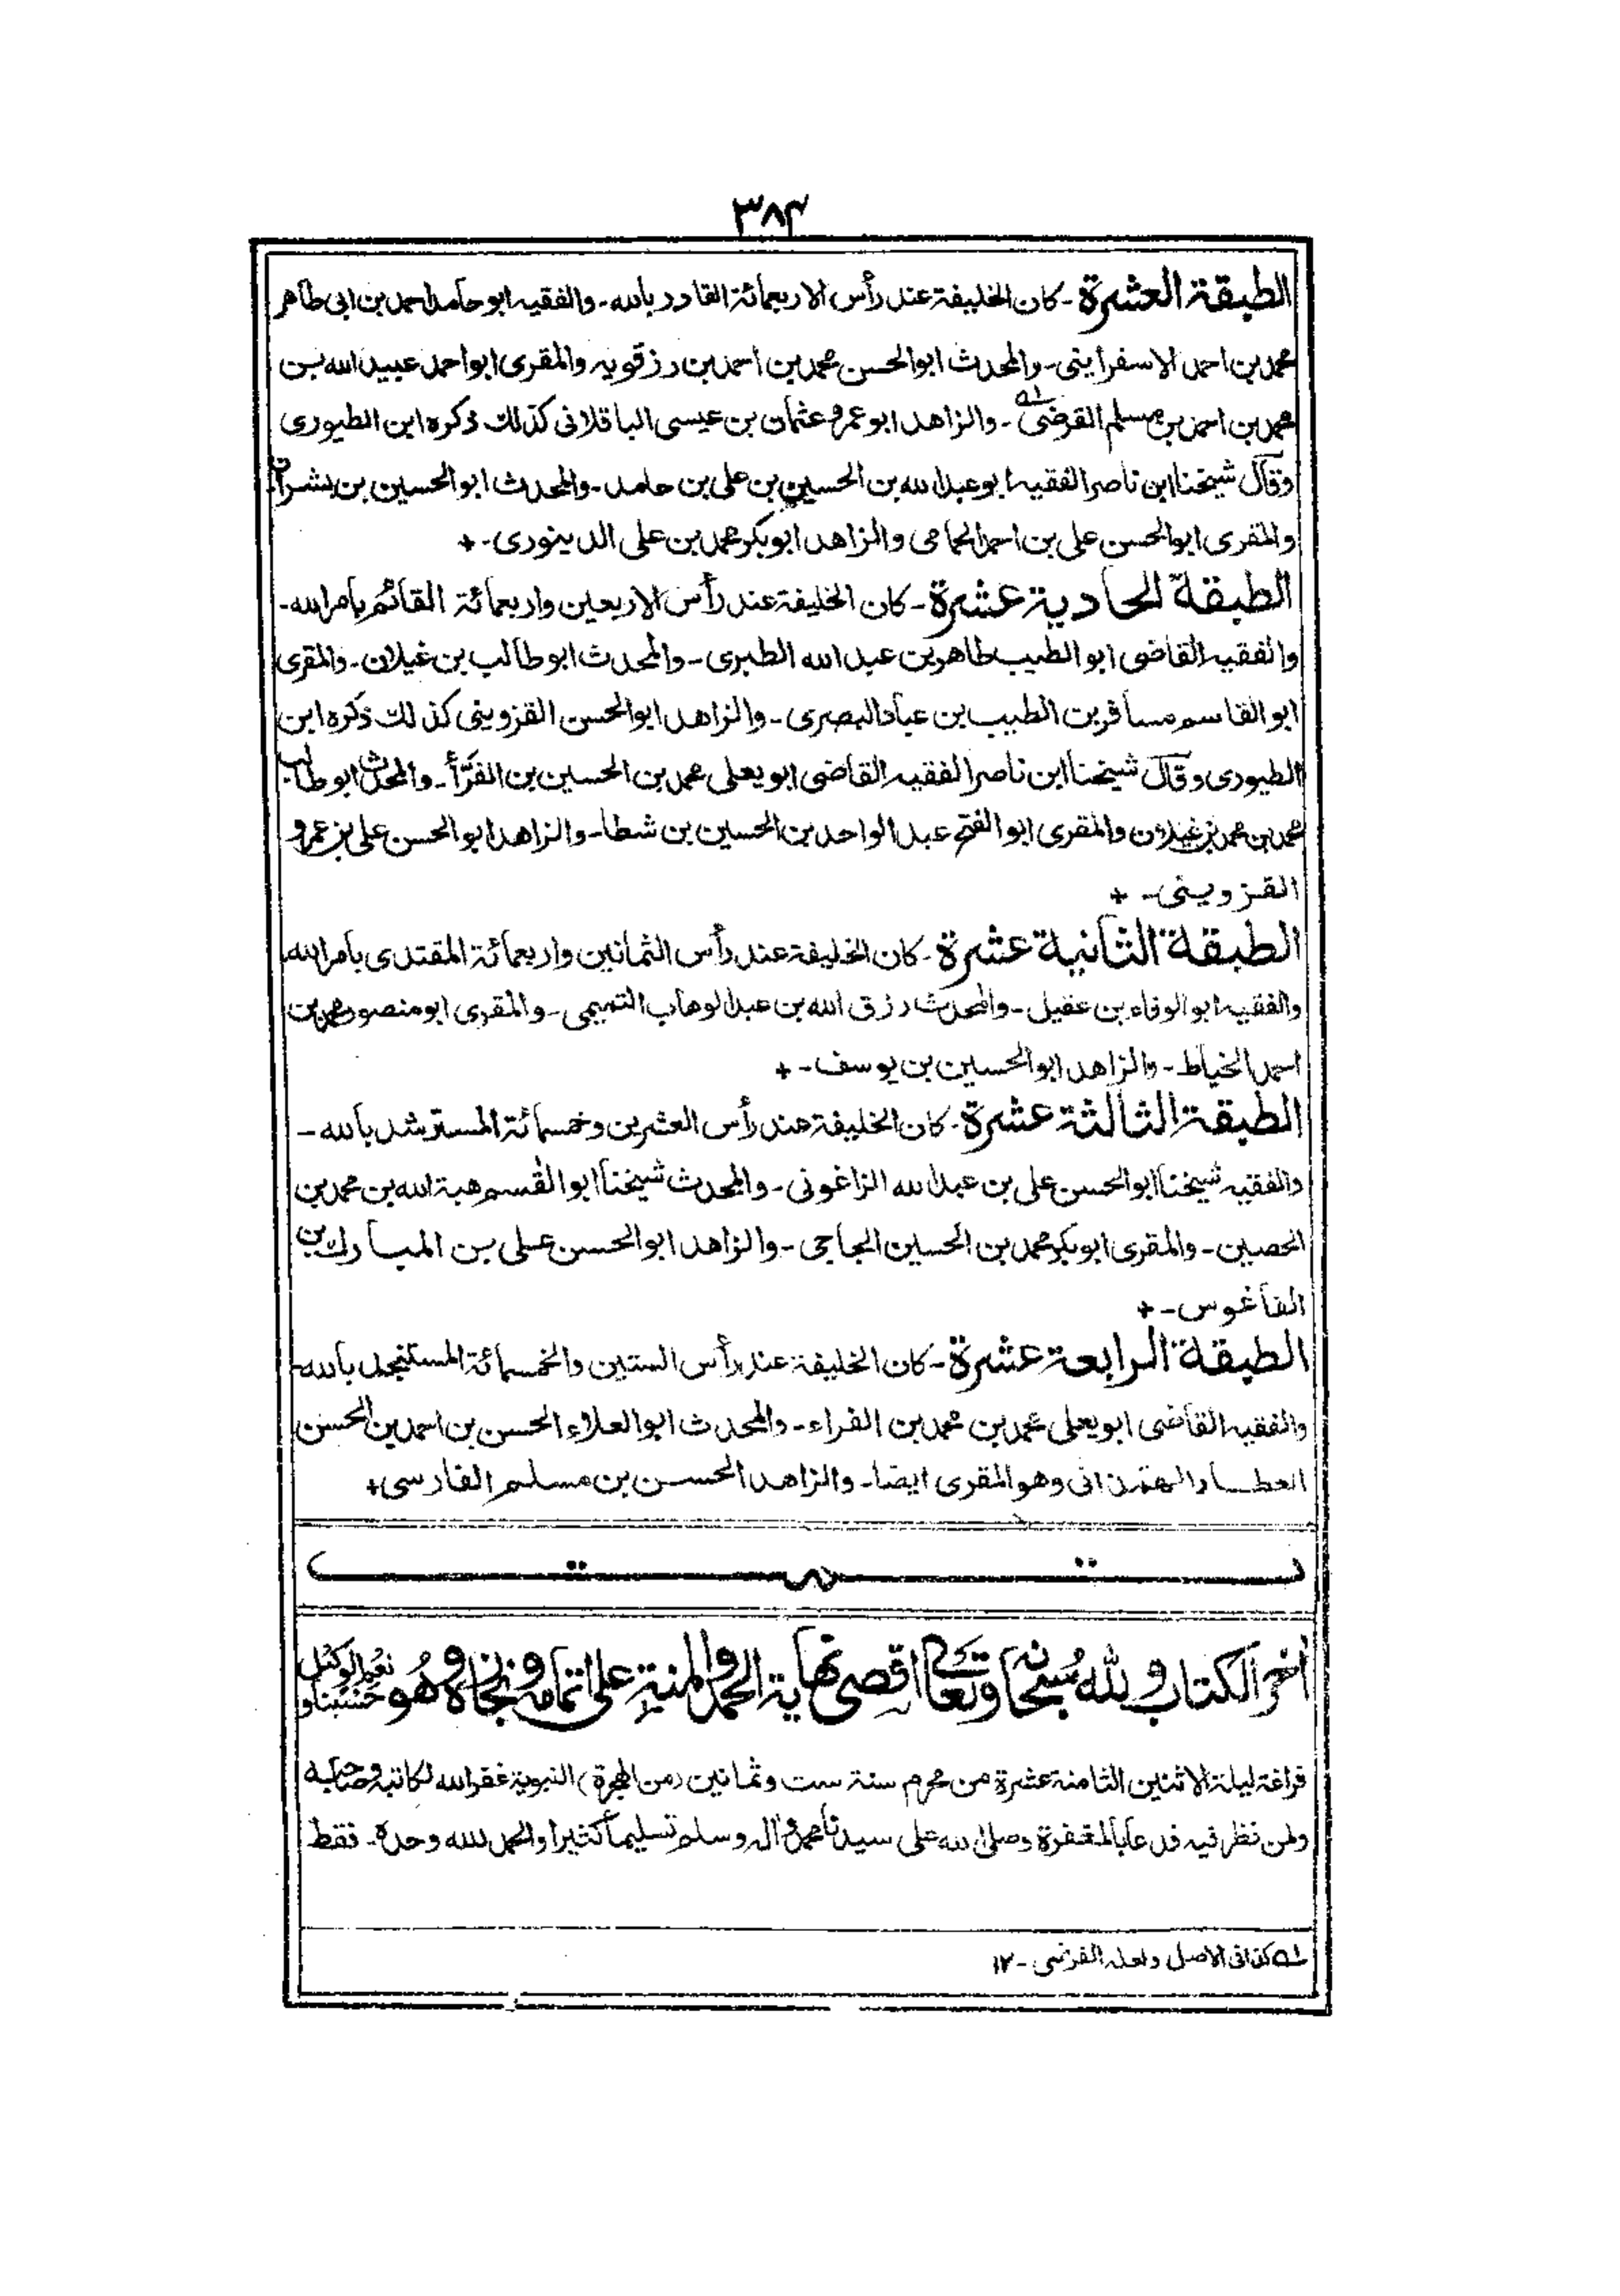 ٣٨٤
الطبقة العشرة - كان الخليفة عند رأس الاربعمائة القادر بالله - والفقيه ابو حامد احمد بن ابى طاهر
محمد بن احمد الاسفراينى - والمحدث ابو الحسن محمد بن احمد بن رزقويه والمقرى ابو احمد عبيد الله بن
محمد بن احمد بن مسلم القرضى له - والزاهد ابو عمرو عثمان بن عيسى الباقلانى كذلك ذكره ابن الطيورى
وقال شيخنا ابن ناصر الفقيه ابو عبد الله بن الحسين بن على بن حامد - والمحدث ابو الحسين بن بشران
والمقرى ابو الحسن على بن احمد الحمامى والزاهد ابو بكر محمد بن على الدينورى - +
الطبقة الحادية عشرة - كان الخليفة عند رأس الاربعين واربعمائة القائم بامر الله -
والفقيه القاضى ابو الطيب طاهر بن عبد الله الطبرى - والمحدث ابو طالب بن غيلان - والمقرى
ابو القاسم مسافر بن الطيب بن عباد البصرى - والزاهد ابو الحسن القزوينى كذلك ذكره ابن
الطيورى وقال شيخنا ابن ناصر الفقيه القاضى ابو يعلى محمد بن الحسين بن الفرّأ - والمحدث ابو طالب
محمد بن محمد بن غيلان والمقرى ابو الفتح عبد الواحد بن الحسين بن شطا - والزاهد ابو الحسن على بن عمرو
القزوينى - +
الطبقة الثانية عشرة - كان الخليفة عند رأس الثمانين واربعمائة المقتدى بامر الله
والفقيه ابو الوفاء بن عقيل - والمحدث رزق الله بن عبد الوهاب التميمى - والمقرى ابو منصور محمد بن
احمد الخياط - والزاهد ابو الحسين بن يوسف - +
الطبقة الثالثة عشرة - كان الخليفة عند رأس العشرين وخمسمائة المسترشد بالله -
والفقيه شيخنا ابو الحسن على بن عبد الله الزاغونى - والمحدث شيخنا ابو القٰسم هبة الله بن محمد بن
الحصين - والمقرى ابو بكر محمد بن الحسين الجاجى - والزاهد ابو الحسن على بن المبارك بن
الفاغوس - +
الطبقة الرابعة عشرة - كان الخليفة عند رأس الستين والخمسمائة المستنجد بالله -
والفقيه القاضى ابو يعلى محمد بن محمد بن الفراء - والمحدث ابو العلاء الحسن بن احمد بن الحسن
العطار الهمذانى وهو المقرى ايضا - والزاهد الحسن بن مسلم الفارسى +
تمت
اٰخر الكتاب ولله سبحانه وتعالى اقصى نهاية الحمد والمنة على اتمامه ونجازه وهو حسبنا ونعم الوكيل
فراغة ليلة الاثنين الثامنة عشرة من محرم سنة ست وثمانين (من الهجرة) النبوية غفر الله لكاتبه وصاحبه
ولمن نظر فيه فدعا بالمغفرة وصلى الله على سيدنا محمد واٰله وسلم تسليما كثيرا والحمد لله وحده - فقط
له كذا فى الاصل ولعله الفرضى - ١٢